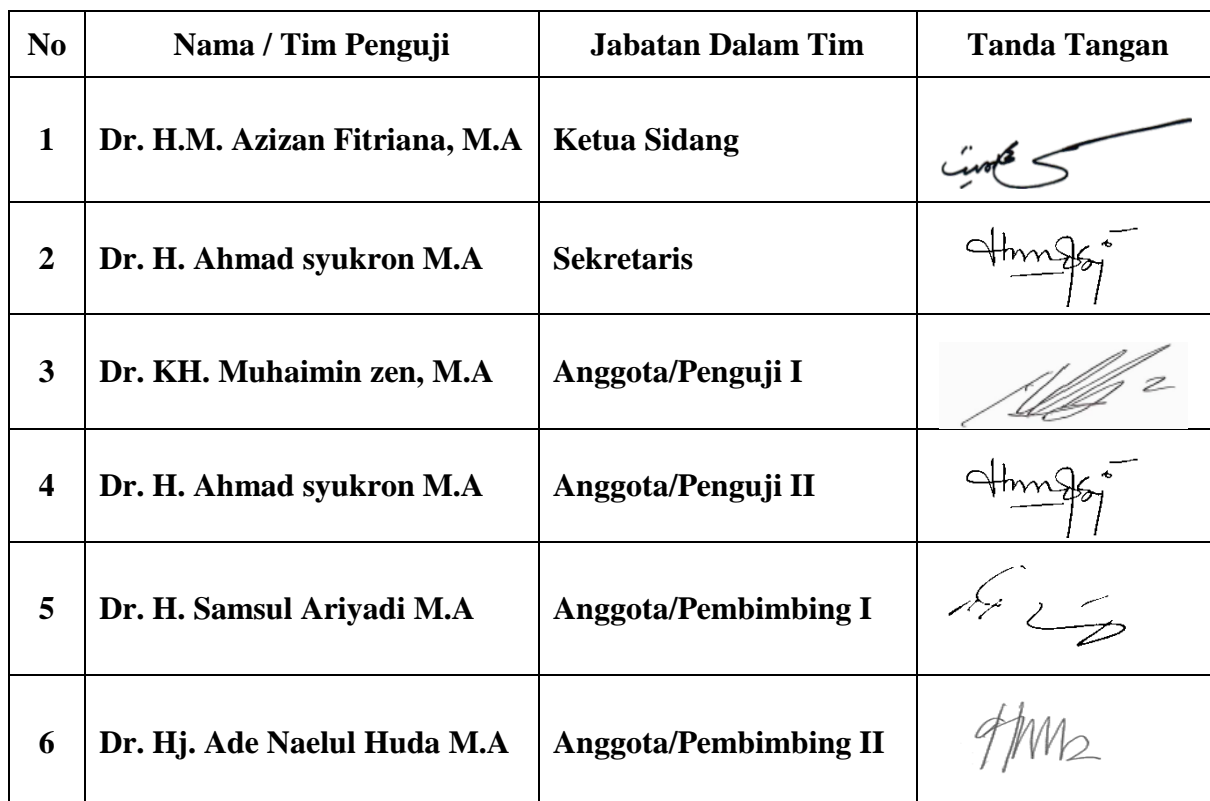 No Nama / Tim Penguji Jabatan Dalam Tim Tanda Tangan
1 Dr. H.M. Azizan Fitriana, M.A Ketua Sidang
2 Dr. H. Ahmad syukron M.A Sekretaris
3 Dr. KH. Muhaimin zen, M.A Anggota/Penguji I
4 Dr. H. Ahmad syukron M.A Anggota/Penguji II
5 Dr. H. Samsul Ariyadi M.A Anggota/Pembimbing I
6 Dr. Hj. Ade Naelul Huda M.A Anggota/Pembimbing II